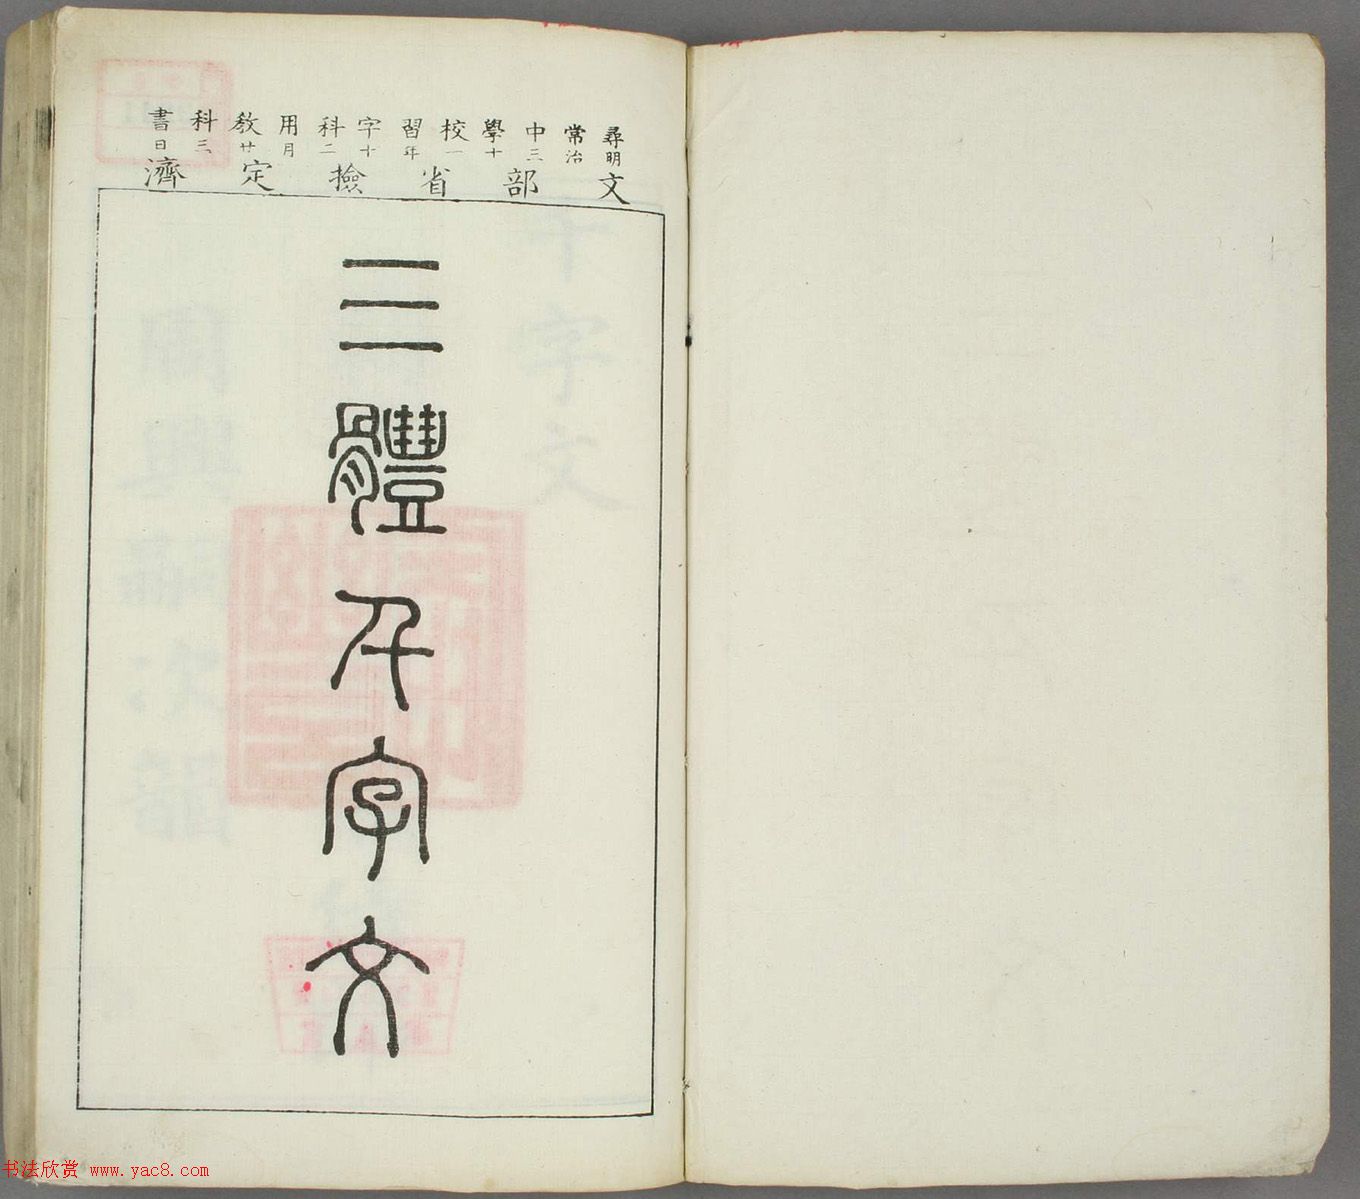 尋常中學校習字科用教科書
明治三十一年十二月廿三日
文部省檢定濟
三體千字文
书法欣赏 www.yac8.com